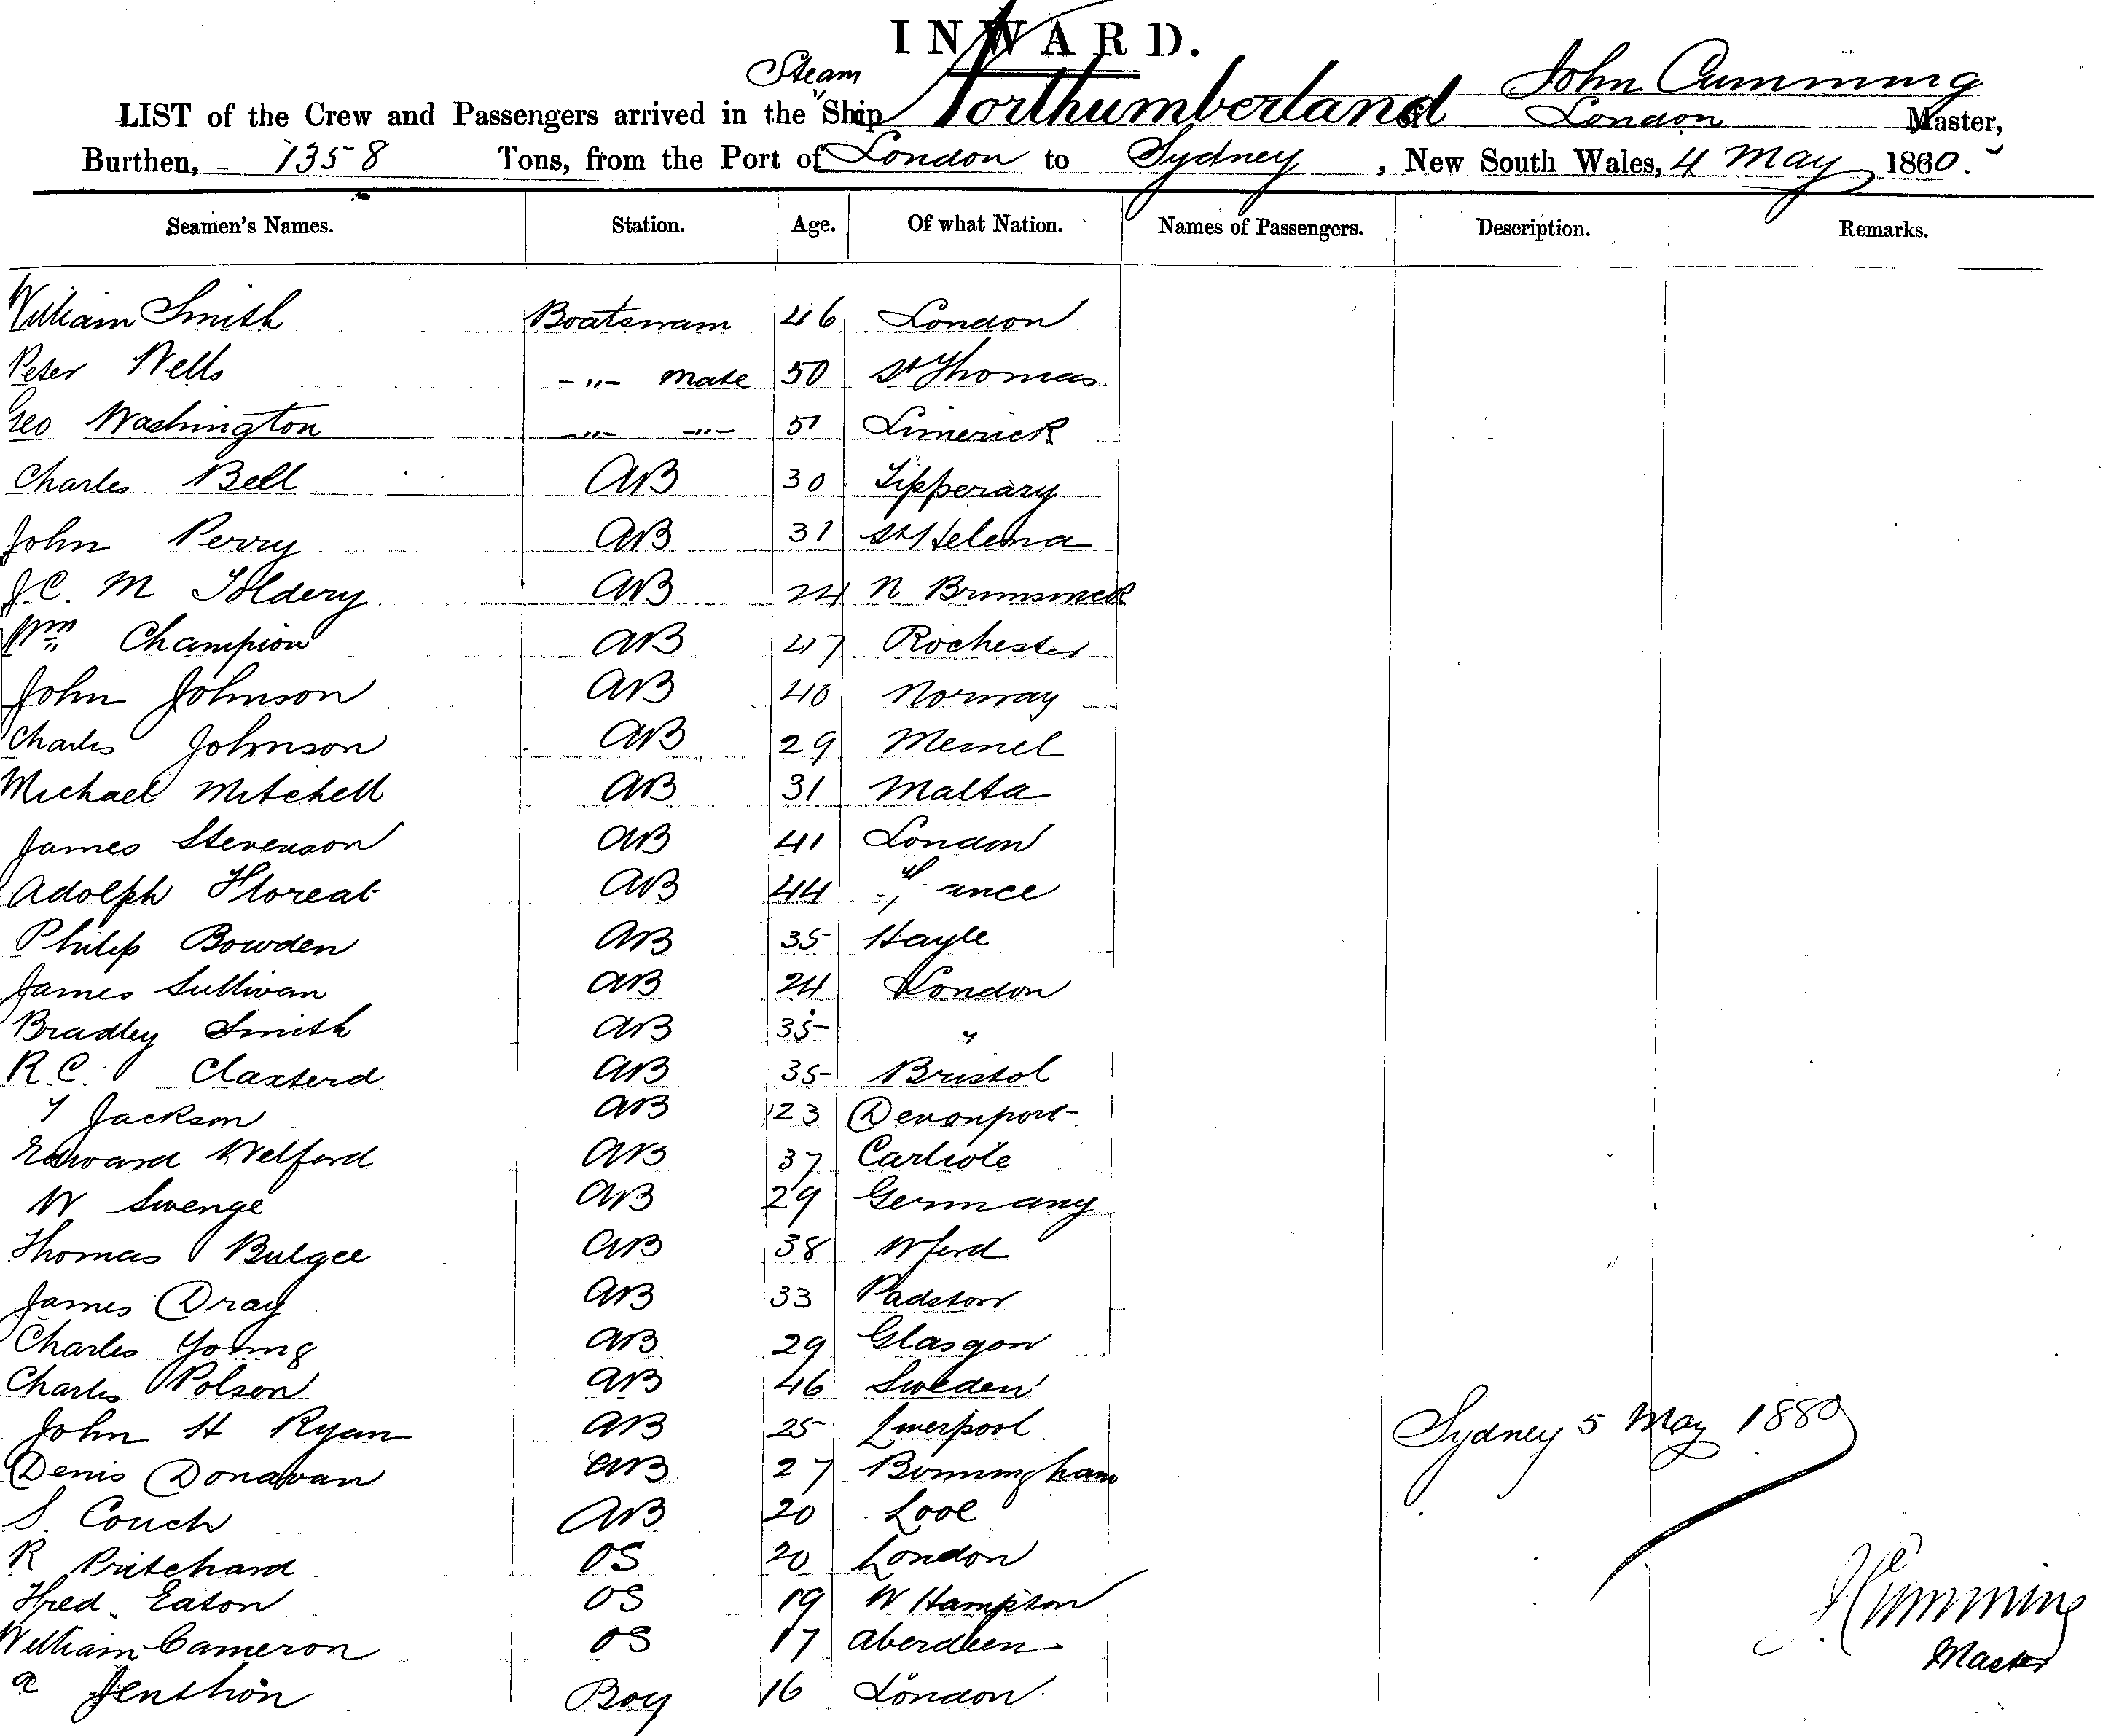 INWARD.
Steam John Cumming
LIST of the Crew and Passengers arrived in the Ship Northumberland of London Master,
Burthen, 1358 Tons, from the Port of London to Sydney, New South Wales, 4 May 1880.
Seamen's Names. Station. Age. Of what Nation. Names of Passengers. Description. Remarks.
William Smith Boatswain 46 London
Peter Wells -"- Mate 50 St Thomas
Geo Washington -"- -"- 51 Limerick
Charles Bell AB 30 Tipperary
John Perry AB 31 St Helena
J.C. M Toldery AB 24 N Brunswick
Wm Champion AB 47 Rochester
John Johnson AB 40 Norway
Charles Johnson AB 29 Memel
Michael Mitchell AB 31 Malta
James Stevenson AB 41 London
Adolph Floreat AB 44
Philip Bowden AB 35 Hayle
James Sullivan AB 24 London
Bradley Smith AB 35 "
R.C. Claxterd AB 35 Bristol
Jackson AB 23 Devonport
Edward Welford AB 37 Carlisle
W Swenge AB 29 Germany
Thomas Bulgee AB 38 Wford
James Dray AB 33 Padstow
Charles Young AB 29 Glasgow
Charles Polson AB 46 Sweden
John H Ryan AB 25 Liverpool
Denis Donavan AB 27 Birmingham
S. Couch AB 20 Looe
R Pritchard OS 20 London
Fred Eaton OS 19 W Hampton
William Cameron OS 17 Aberdeen
a Boy 16 London
Sydney 5 May 1880
J Cumming
Master